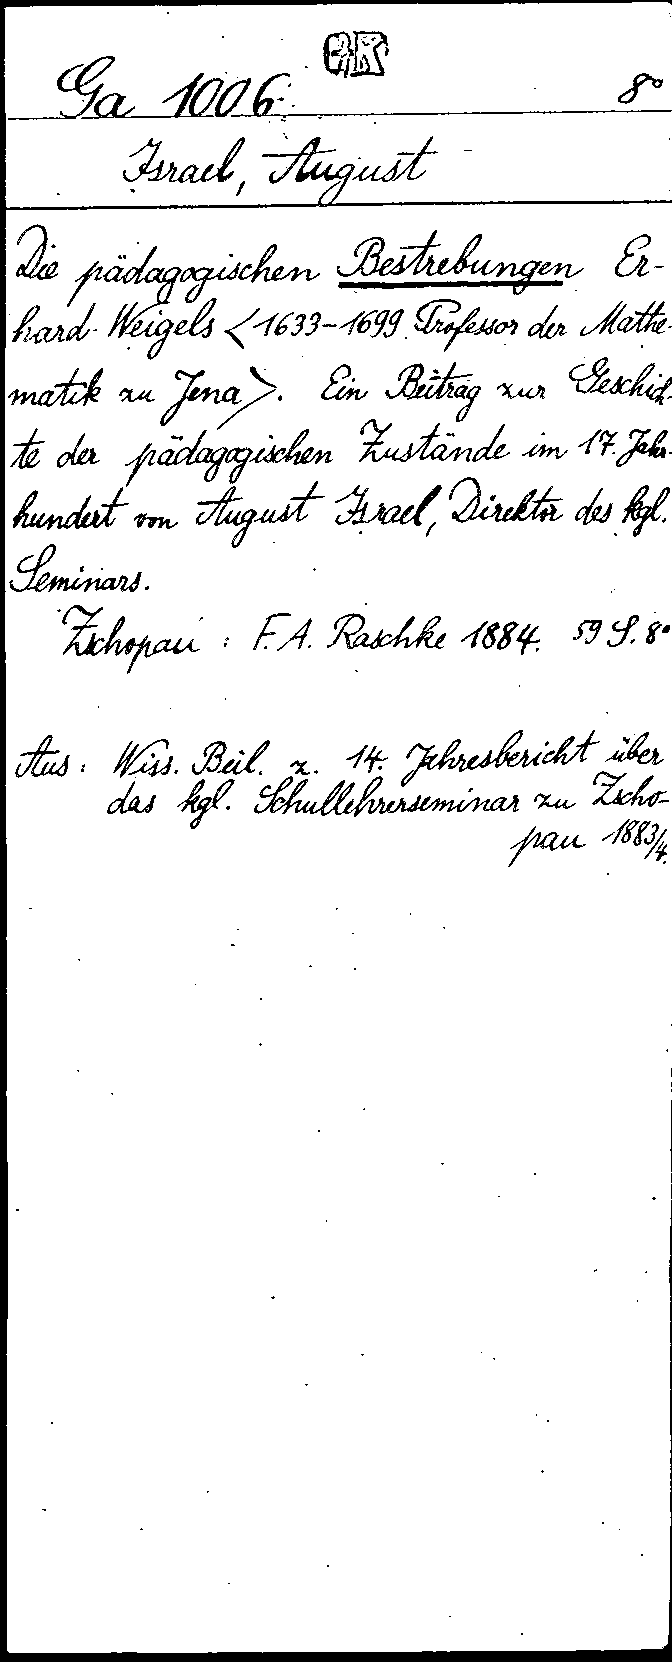 Ga 1006. 8°
Israel, August
Die pädagogischen Bestrebungen Er-
hard Weigels <1633-1699 Professor der Mathe-
matik zu Jena>. Ein Beitrag zur Geschich-
te der pädagogischen Zustände im 17. Jahr-
hundert von August Israel, Direktor des kgl.
Seminars.
Zschopau : F. A. Raschke 1884. 59 S. 8°
Aus: Wiss. Beil. z. 14. Jahresbericht über
das kgl. Schullehrerseminar zu Zscho-
pau 1883/4.